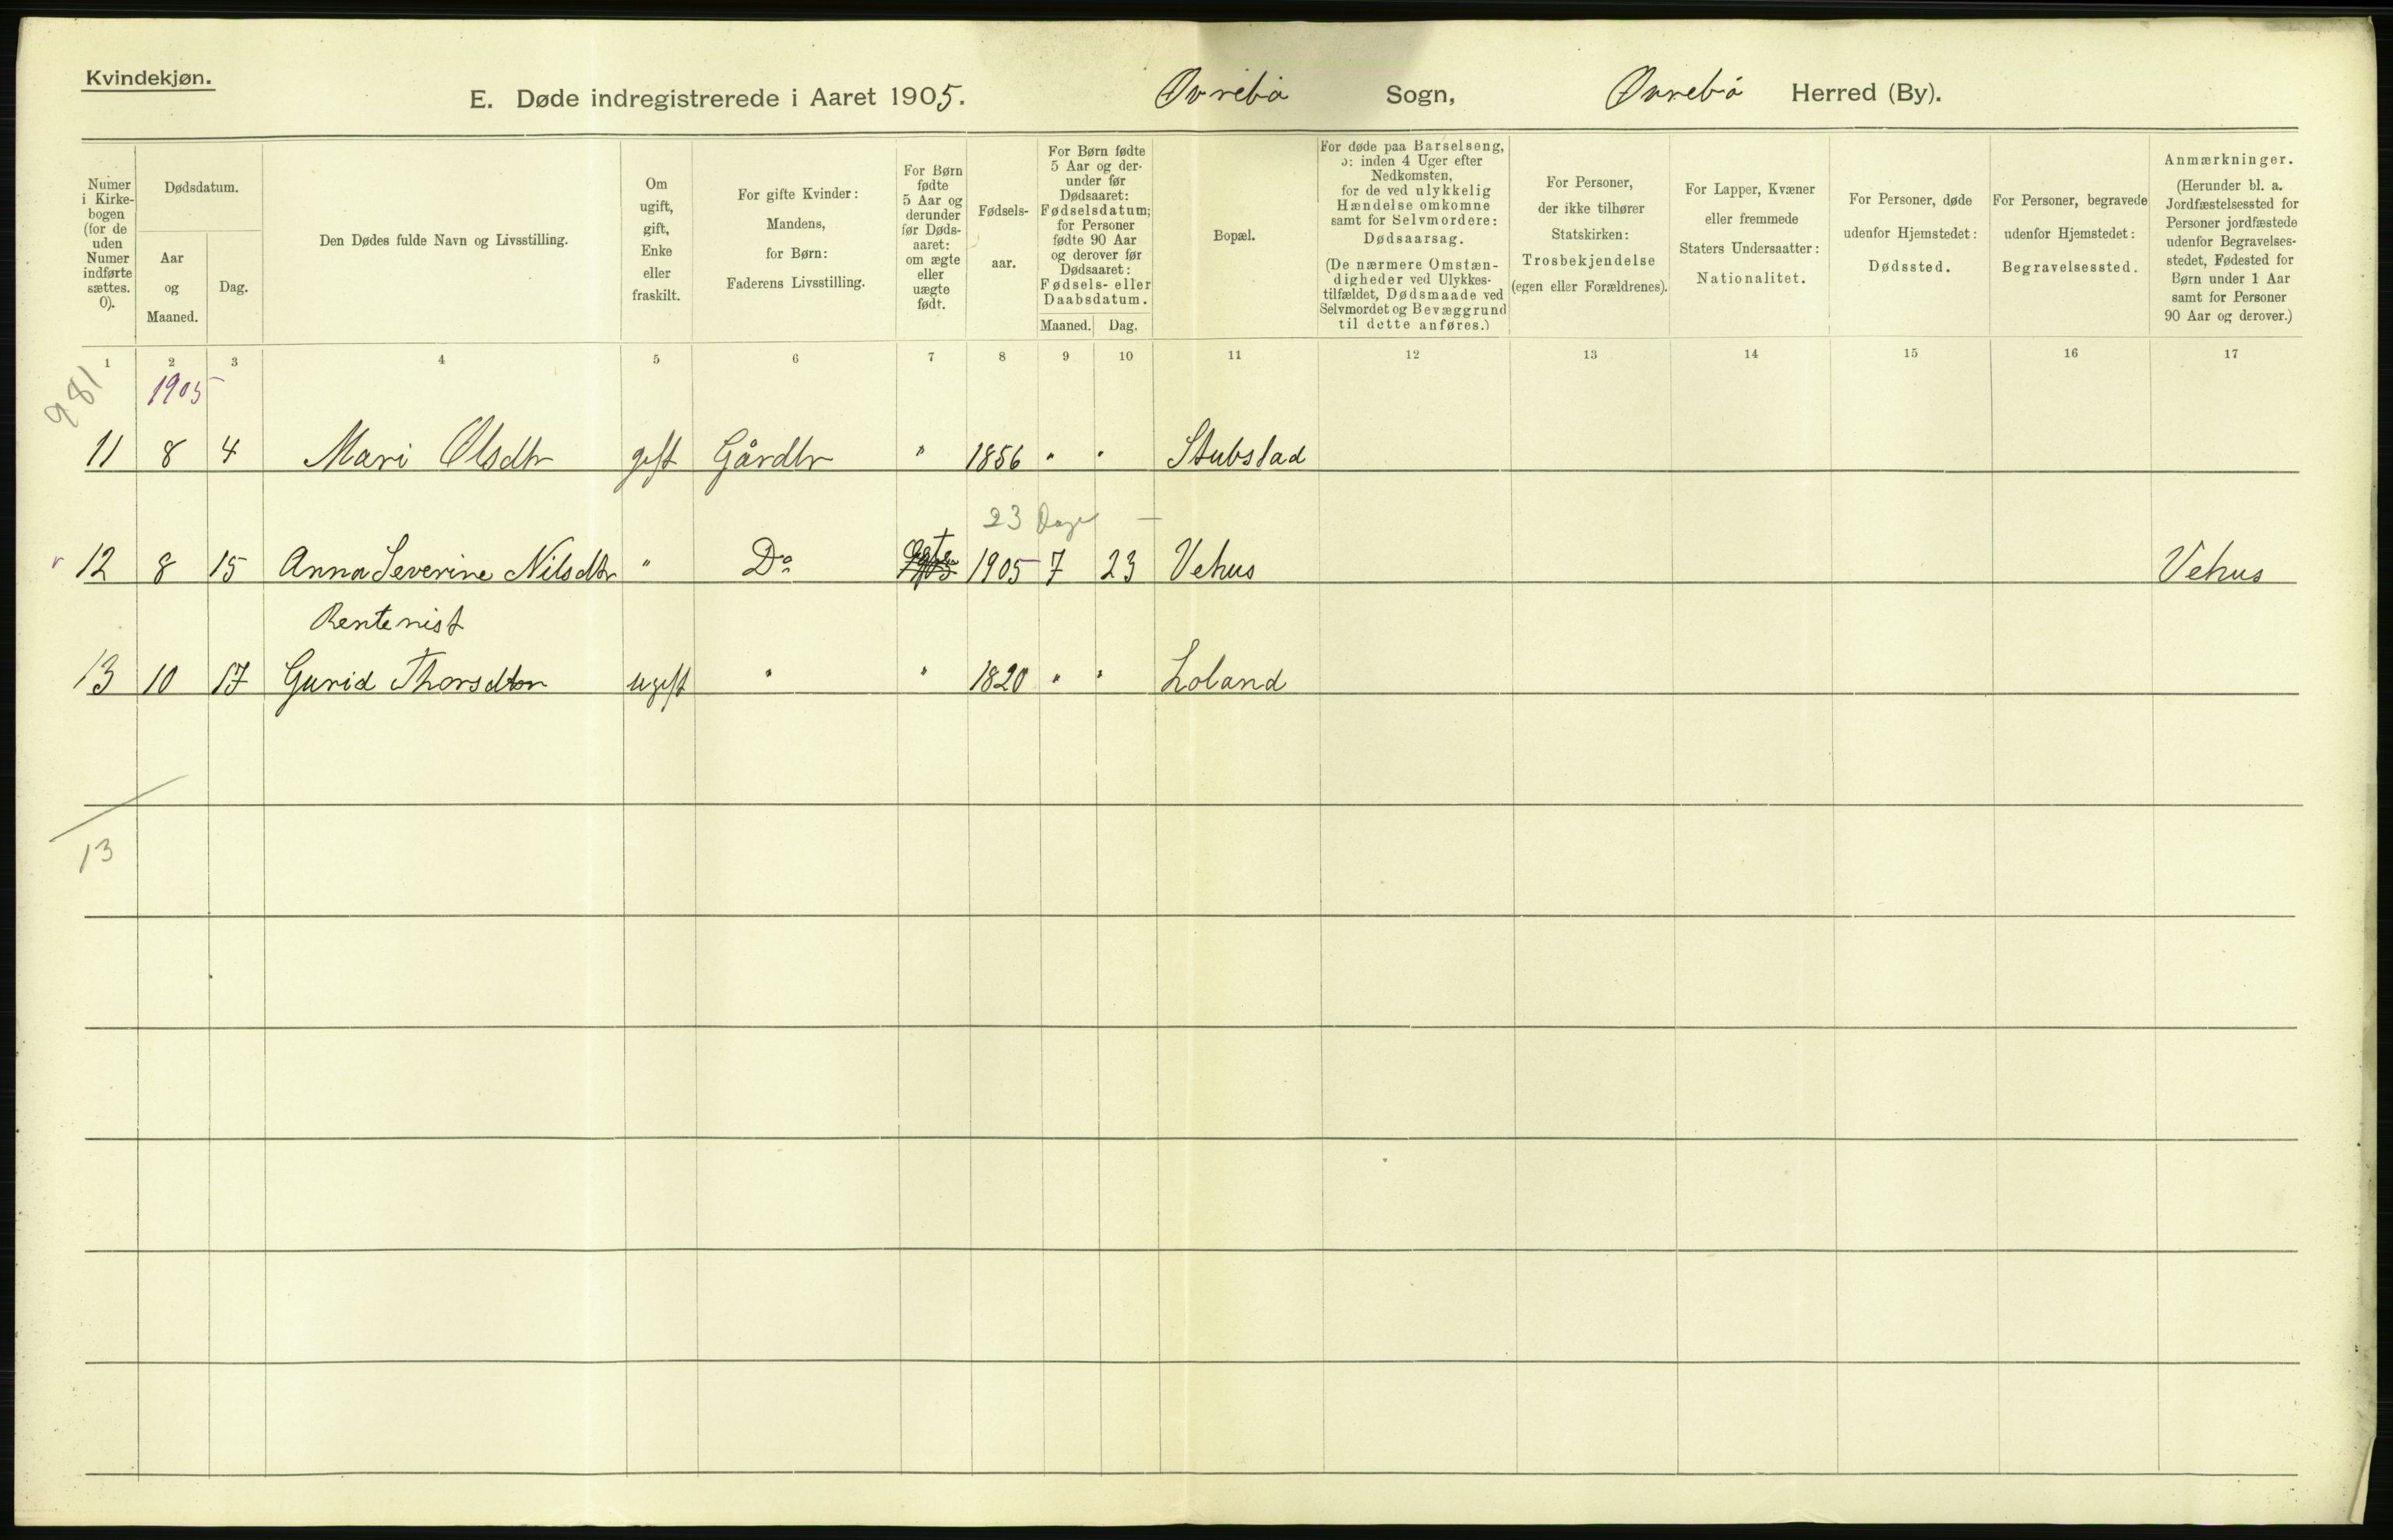 Kvindekjøn.
E. Døde indregistrerede i Aaret 1905. Øvrebø Sogn, Øvrebø Herred (By).
Numer i Kirkebogen (for de uden Numer indførte sættes. 0).
Dødsdatum.
Aar og Maaned.
Dag.
Den Dødes fulde Navn og Livsstilling.
Om ugift, gift, Enke eller fraskilt.
For gifte Kvinder: Mandens, for Børn: Faderens Livsstilling.
For Børn fødte 5 Aar og derunder før Dødsaaret: om ægte eller uægte født.
Fødselsaar.
For Børn fødte 5 Aar og derunder før Dødsaaret: Fødselsdatum; for Personer fødte 90 Aar og derover før Dødsaaret: Fødsels- eller Daabsdatum.
Maaned. Dag.
Bopæl.
For døde paa Barselseng, ɔ: inden 4 Uger efter Nedkomsten, for de ved ulykkelig Hændelse omkomne samt for Selvmordere: Dødsaarsag. (De nærmere Omstændigheder ved Ulykkestilfældet, Dødsmaade ved Selvmordet og Bevæggrund til dette anføres.)
For Personer, der ikke tilhører Statskirken: Trosbekjendelse (egen eller Forældrenes).
For Lapper, Kvæner eller fremmede Staters Undersaatter: Nationalitet.
For Personer, døde udenfor Hjemstedet: Dødssted.
For Personer, begravede udenfor Hjemstedet: Begravelsessted.
Anmærkninger. (Herunder bl. a. Jordfæstelsessted for Personer jordfæstede udenfor Begravelsesstedet, Fødested for Børn under 1 Aar samt for Personer 90 Aar og derover.)
1 2 3 4 5 6 7 8 9 10 11 12 13 14 15 16 17
981
1905
11 8 4 Mari Olsdtr gift Gårdbr " 1856 " " Stubstad
23 Dage —
12 8 15 Anna Severine Nilsdtr " Do 1905 7 23 Vehus Vehus
Rentenist
13 10 17 Gurid Thorsdtr ugift " " 1820 " " Loland
13